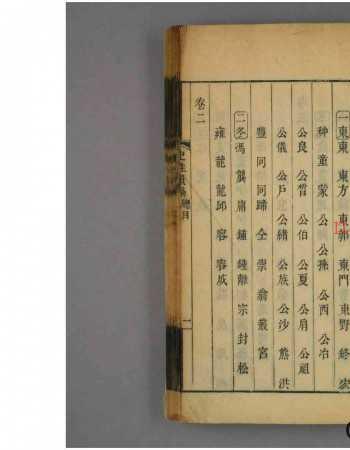 一東 東 東方 東郭 東門 東野 終
种 童 蒙 公 公孫 公西 公冶
公良 公 公伯 公夏 公肩 公祖
公儀 公戶 公緒 公族 公沙 熊 洪
豐 同 同蹄 仝 崇 翁 叢 宮
二冬 馮 龔 庸 鍾 鍾離 宗 封 松
雍 龍 龍邱 容 容成
卷二
一